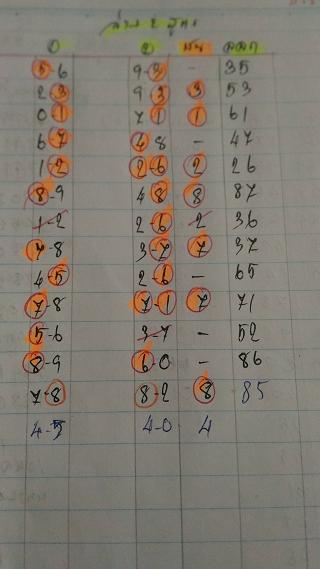 ล่าง 2 สูตร
① ② ฟัน ออก
5-6 9-3 - 35
2 3 9 3 3 53
0 1 7 1 1 61
6 7 4 8 - 47
1-2 2-6 2 26
8-9 4 8 8 87
1-2 2-6 2 36
7-8 3-7 7 37
4-5 2-6 - 65
7-8 7-1 7 71
5-6 3-7 - 52
8-9 6-0 - 86
7-8 8-2 8 85
4-5 4-0 4